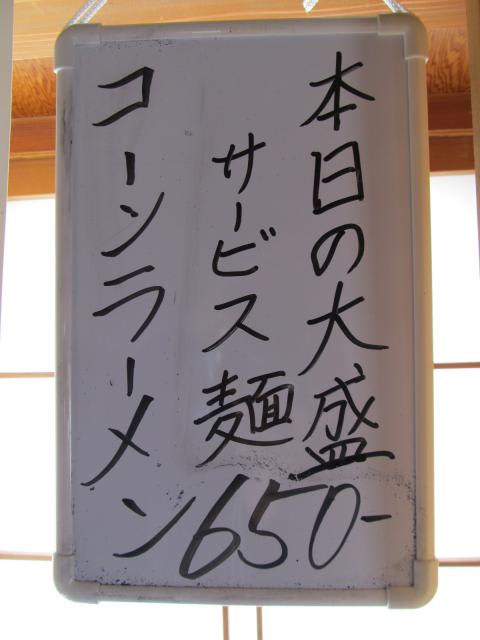 本日の大盛
サービス麺
コーンラーメン
650-